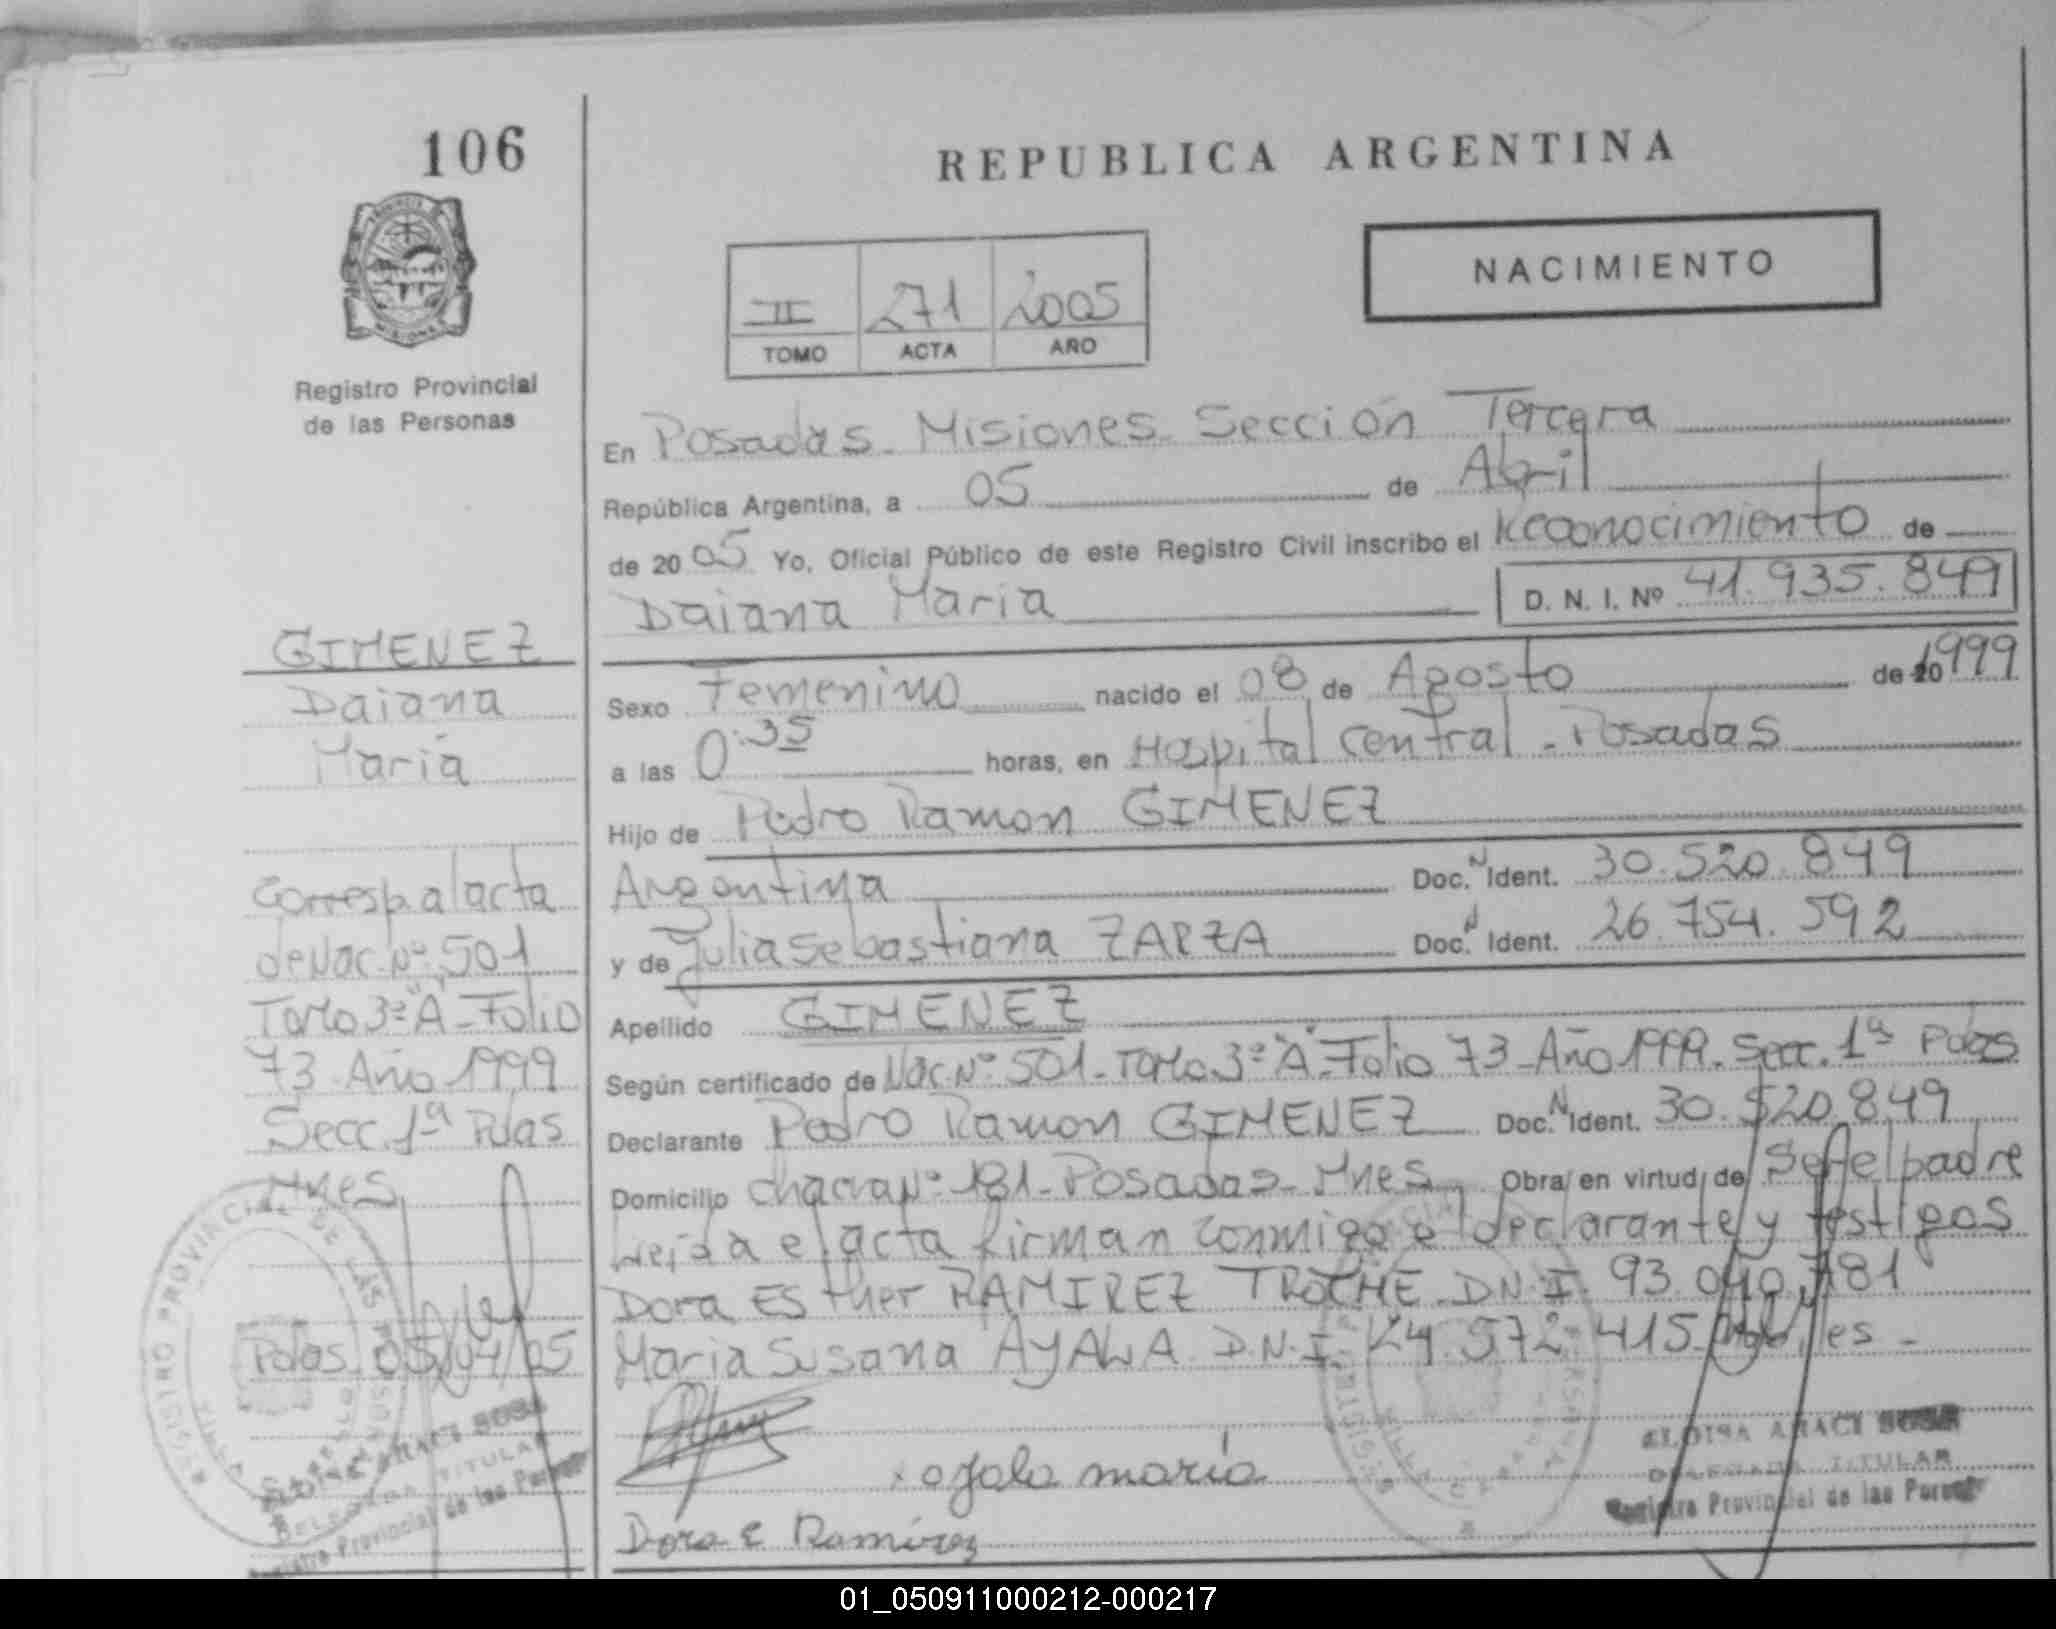 106
REPUBLICA ARGENTINA
NACIMIENTO
II 271 2005
TOMO ACTA AÑO
Registro Provincial
de las Personas
En Posadas - Misiones Sección Tercera
República Argentina, a 05 de Abril
de 2005 Yo, Oficial Público de este Registro Civil inscribo el Reconocimiento de
Daiana Maria D. N. I. Nº 41.935.849
GIMENEZ
Daiana
Maria
Corresp. al acta
de Nac. Nº 501
Tomo 3º "A" - Folio
73 - Año 1999
Secc. 1ª Pdas
Mnes
Pdas 05/04/05
Sexo Femenino nacido el 08 de Agosto de 20 1999
a las 0:35 horas, en Hospital Central - Posadas
Hijo de Pedro Ramon GIMENEZ
Argentina Doc. N Ident. 30.520.849
y de Julia Sebastiana ZARZA Doc. Ident. 26.754.592
Apellido GIMENEZ
Según certificado de Nac. Nº 501 - Tomo 3º "A" - Folio 73 - Año 1999. Secc. 1ª Pdas
Declarante Pedro Ramon GIMENEZ Doc. N Ident. 30.520.849
Domicilio chacra Nº 181 - Posadas - Mnes Obra en virtud de Ser el padre
Leida el acta firman conmigo el declarante y testigos
Dora Esther RAMIREZ TROCHE D.N.I. 93.040.781
Maria Susana AYALA D.N.I. 24.572.415
ayala maría
Dora E Ramirez
ELOISA ARACI SOSA
DELEGADA TITULAR
Registro Provincial de las Personas
REGISTRO PROVINCIAL DE LAS PERSONAS
ELOISA ARACI SOSA
DELEGADA TITULAR
Registro Provincial de las Personas
01_050911000212-000217